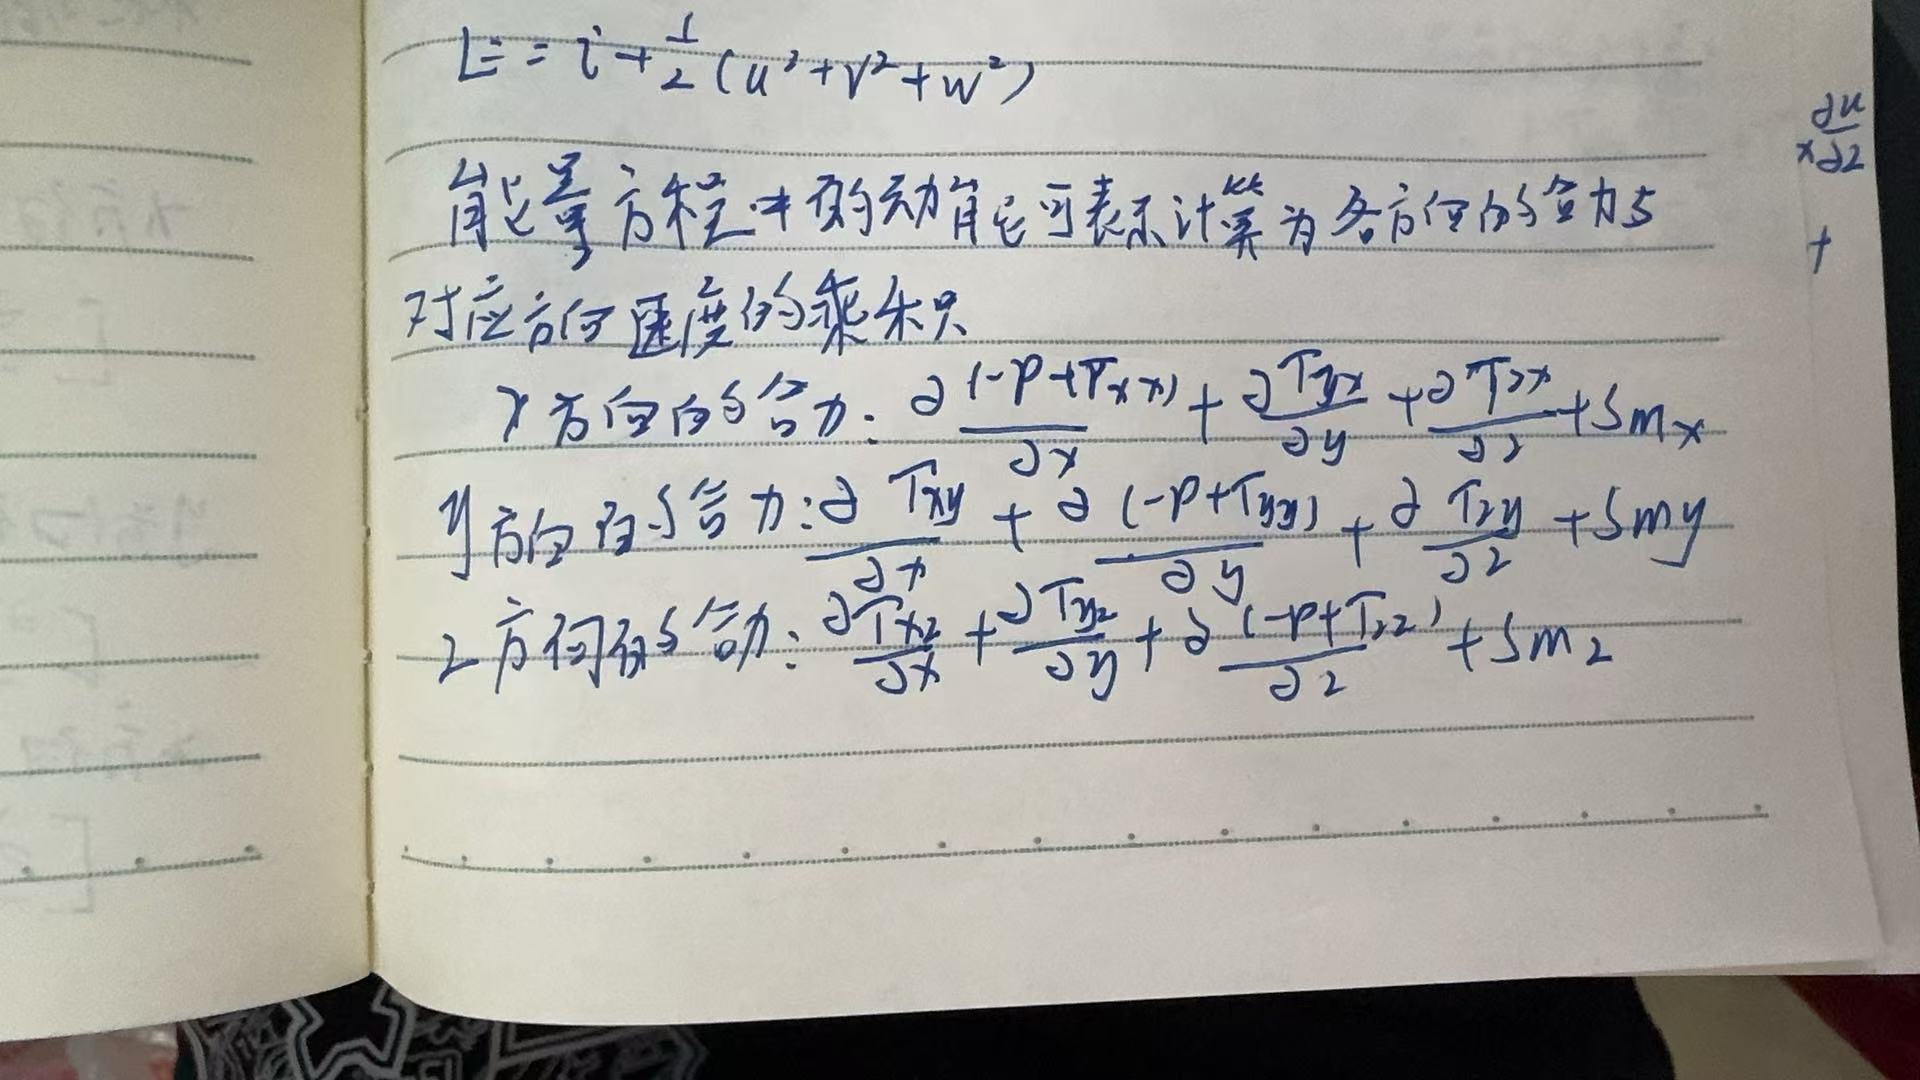 E = i + 1/2 (u² + v² + w²)
能量方程中的动能可表示计算为各方向的合力与
对应方向速度的乘积
x方向的合力: ∂(-p+τxx)/∂x + ∂τyx/∂y + ∂τzx/∂z + Smx
y方向的合力: ∂τxy/∂x + ∂(-p+τyy)/∂y + ∂τzy/∂z + Smy
z方向的合力: ∂τxz/∂x + ∂τyz/∂y + ∂(-p+τzz)/∂z + Smz
∂u
x ∂z
+